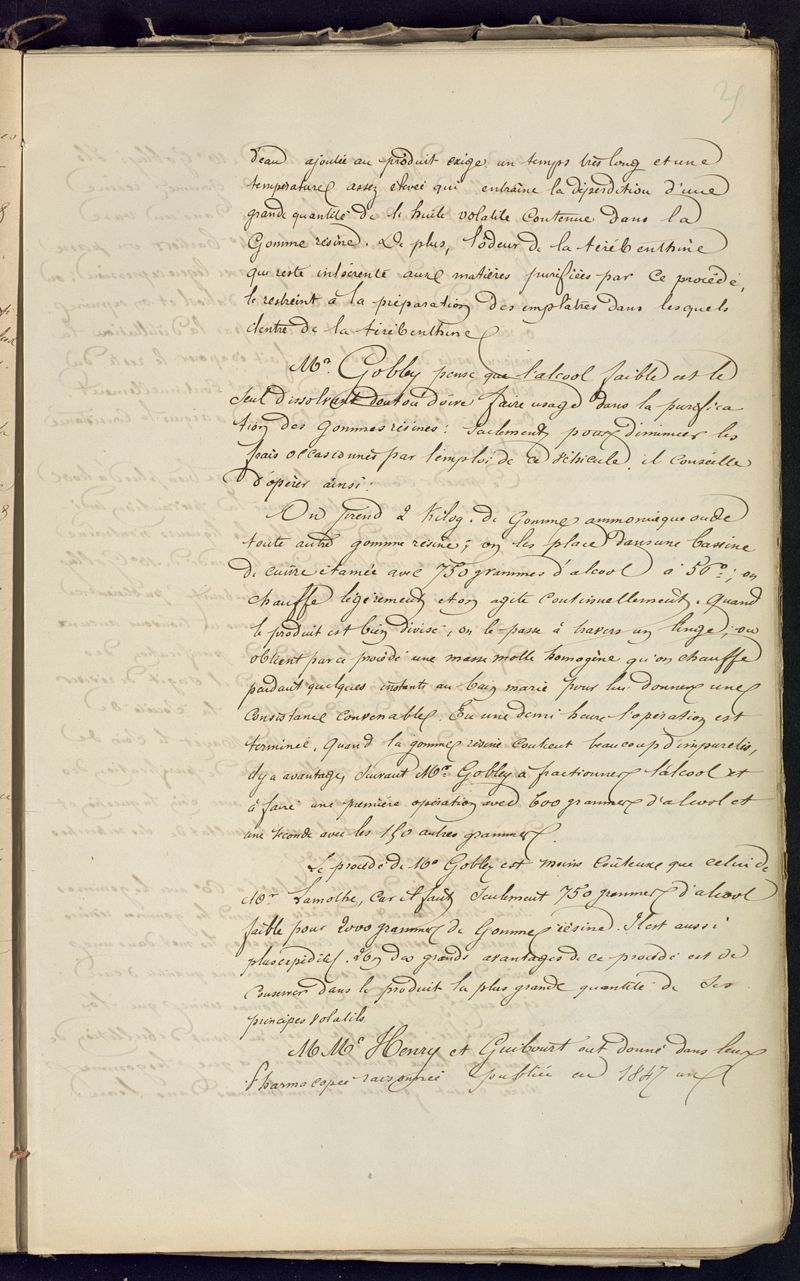 d'eau ajoutée au produit exige un temps très long et une
température assez élevée qui entraîne la déperdition d'une
grande quantité de l'huile volatile contenue dans la
Gomme résine. De plus, l'odeur de la térébenthine
qui reste inhérente aux matières purifiées par ce procédé,
le restreint à la préparation des emplâtres dans lesquels
il entre de la térébenthine
Mr. Gobley pense que l'alcool faible est le
seul dissolvant dont on doive faire usage dans la purifica
tion des gommes résines : seulement pour diminuer les
frais occasionnés par l'emploi de ce véhicule, il conseille
d'opérer ainsi :
On prend 2 Kilog. de Gomme ammoniaque ou de
toute autre gomme résine ; on les place dans une bassine
de cuivre étamée avec 750 grammes d'alcool à 56° ; on
chauffe légèrement et on agite continuellement. Quand
le produit est bien divisé, on le passe à travers un linge ; on
obtient par ce procédé une masse molle homogène qu'on chauffe
pendant quelques instants au bain marie pour lui donner une
consistance convenable. En une demi heure l'opération est
terminée. Quand la gomme résine contient beaucoup d'impuretés,
il y a avantage, suivant Mr. Gobley à fractionner l'alcool et
à faire une première opération avec 600 grammes d'alcool et
une seconde avec les 150 autres grammes.
Le procédé de Mr Gobley est moins coûteux que celui de
Mr. Lamothe, car il faut seulement 750 grammes d'alcool
faible pour 2000 grammes de Gomme résine. Il est aussi
plus expéditif. Un des grands avantages de ce procédé est de
conserver dans le produit la plus grande quantité de ses
principes volatils.
M Mrs Henry et Guibourt ont donné dans leur
Pharmacopée raisonnée publiée en 1847 un